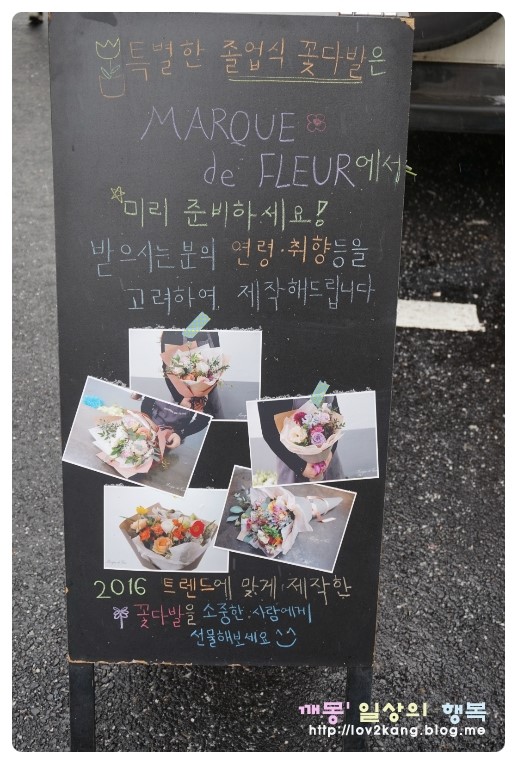 특별한 졸업식 꽃다발은
MARQUE
de FLEUR에서
미리 준비하세요!
받으시는 분의 연령·취향등을
고려하여, 제작해드립니다
2016 트렌드에 맞게 제작한
꽃다발을 소중한 사람에게
선물해보세요
깨몽' 일상의 행복
http://lov2kang.blog.me